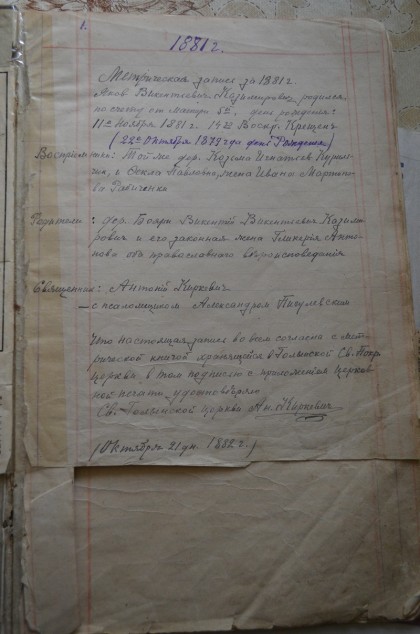 1.
1881 г.
Метрическая запись за 1881 г.
Яков Викентьевич Казимирович, родился
по счету от матери 5й, день рождения:
11го Ноября 1881 г. 14го Воскр. Крещен
(22го Октября 1879 года день Рождения)
Восприемники: Той же дер. Козьма Игнатьев
и Фекла Павловна, жена Ивана Мартино
ва Рабиченко
Родители: дер. Боярн Викентий Викентьевъ Казими
рович и его законная жена Гликерiя Анто
нова объ православного вероисповедания
Священник: Антонiй Киркевич
– с псаломщиком Александром Пигулевским
Что настоящая запись во всем согласна с мет
рической книгой хранящейся в Голынской Св. Покр.
церкви, в том подписью с приложенiем церков
ной печати удостоверяю
Св. Голынской церкви Ан. Киркевич
(Октября 21 дн. 1882 г.)